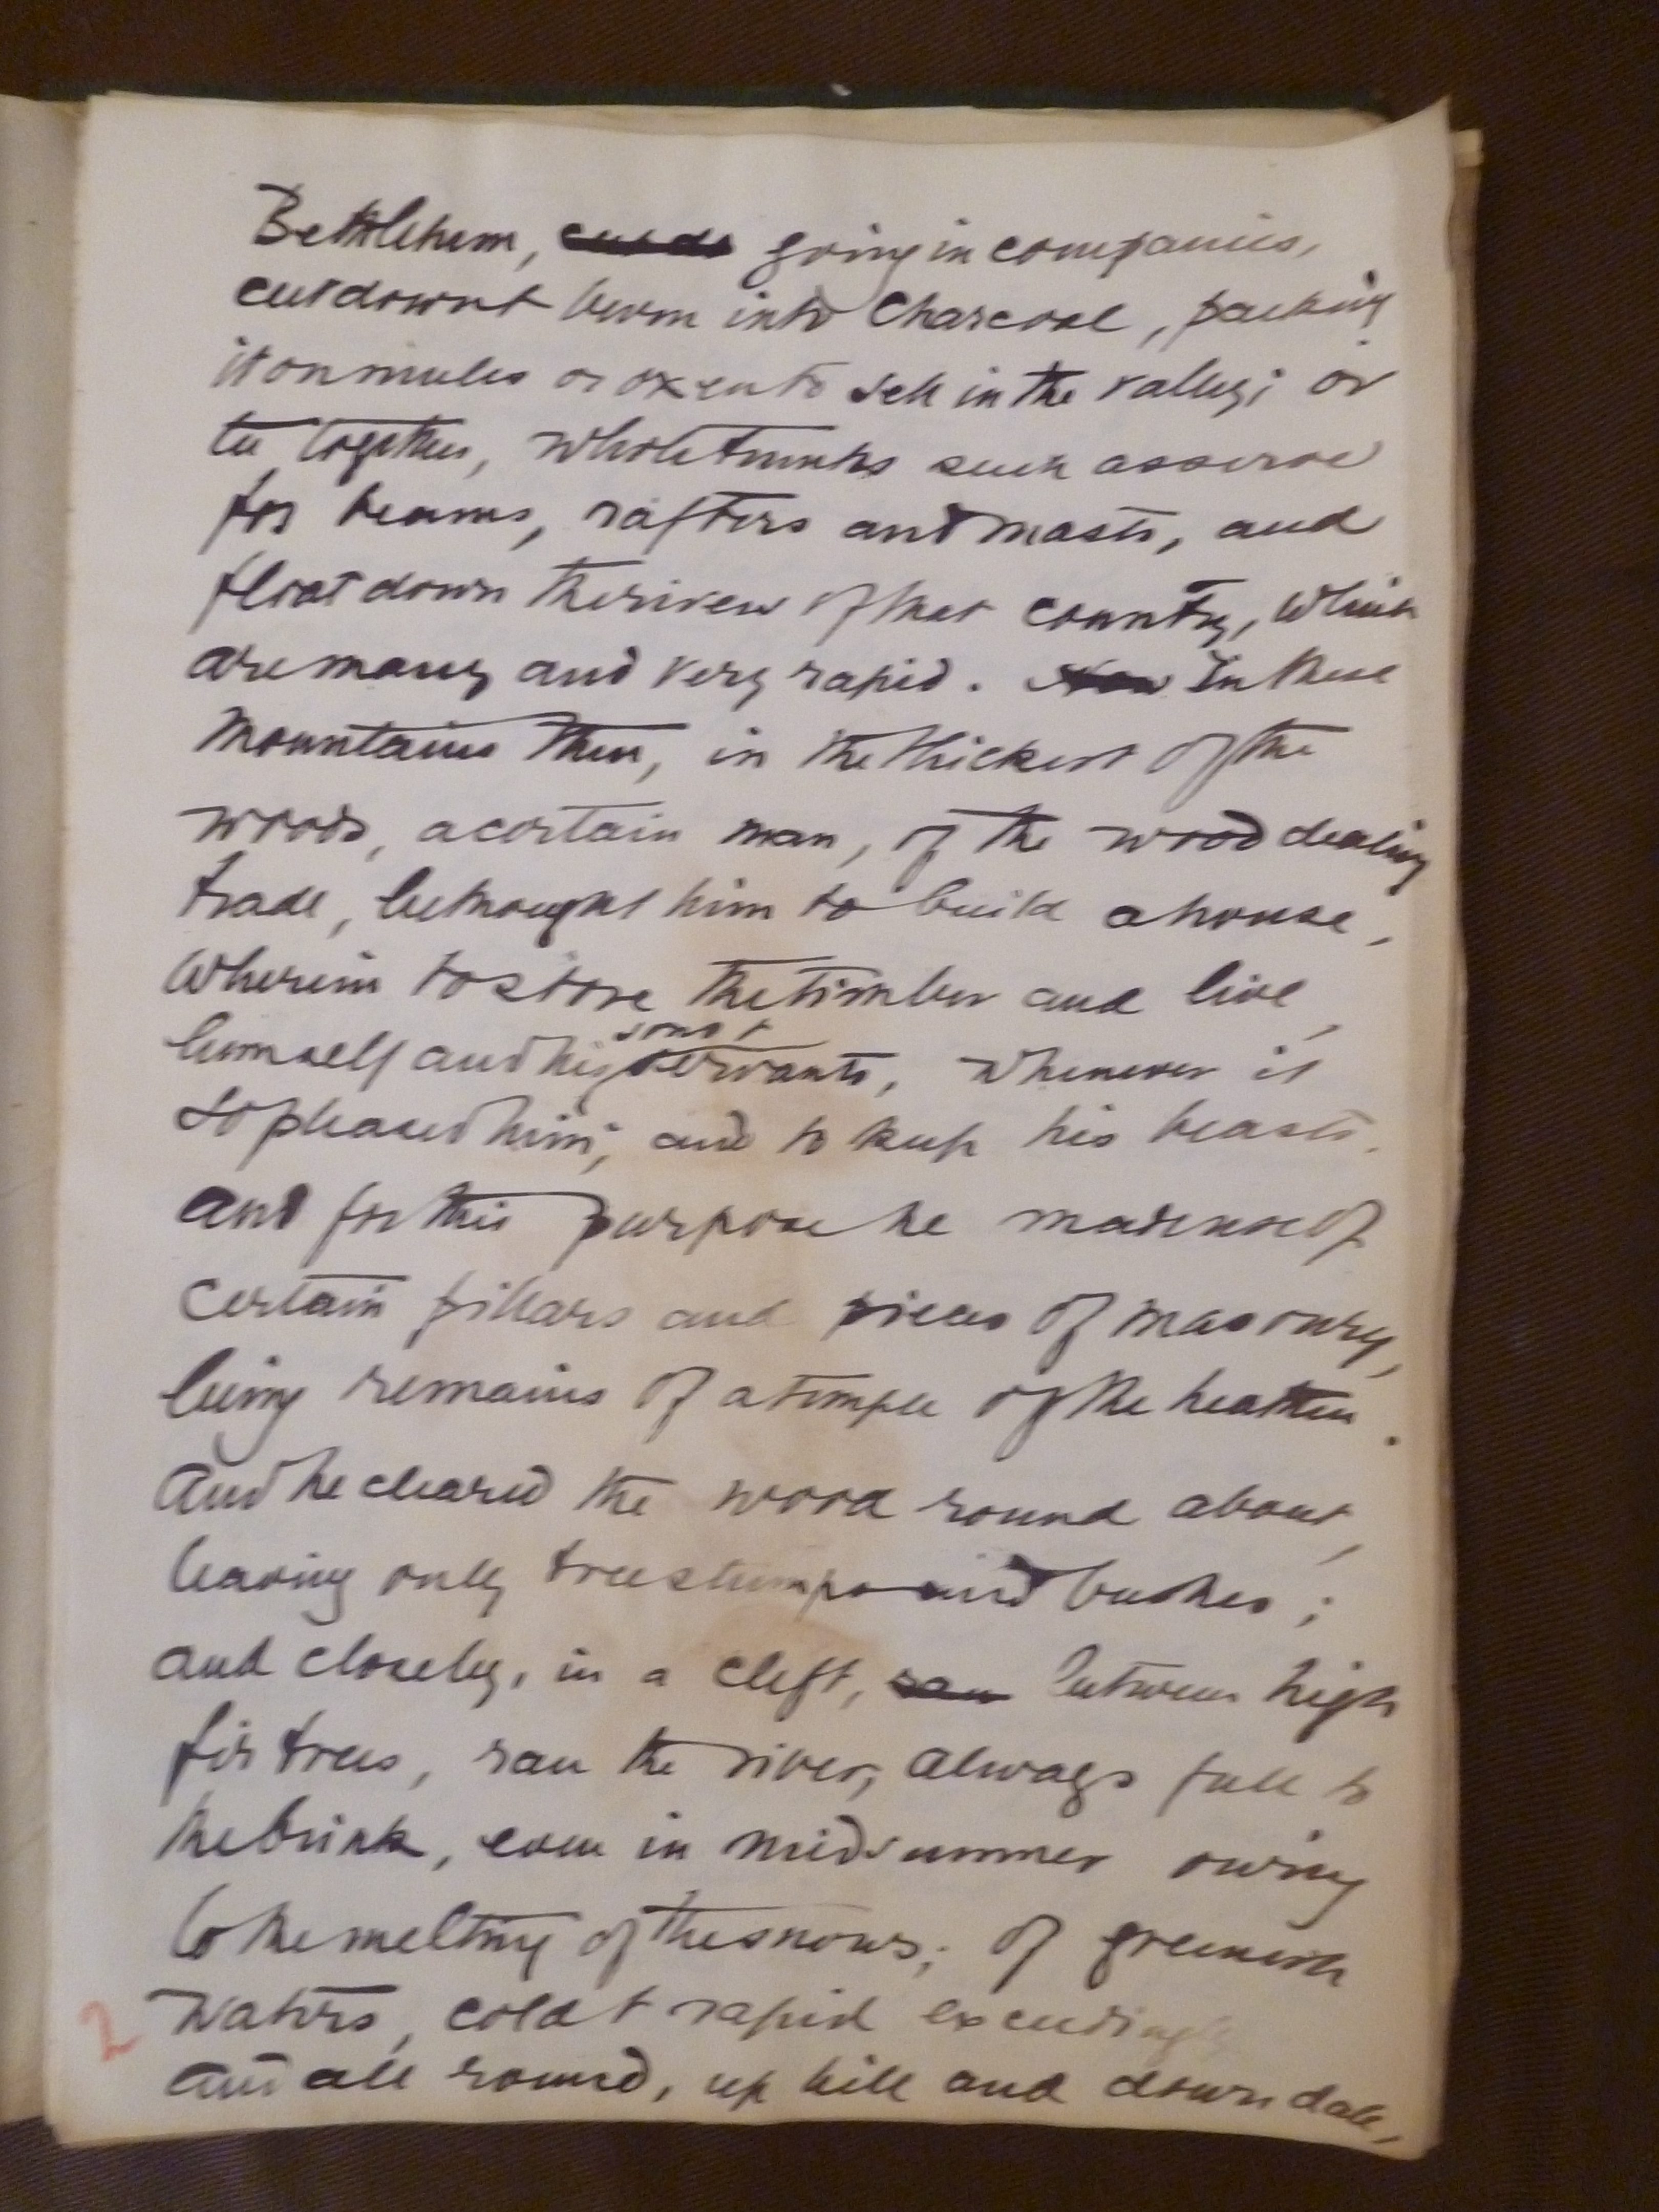 Bethlehem, going in companies,
cut down & burn into charcoal, packing
it on mules or oxen to sell in the valley; or
tie together, whole trunks such as serve
for beams, rafters and masts, and
float down the rivers of that country, which
are many and very rapid. In these
mountains then, in the thickest of the
woods, a certain man, of the wood dealing
trade, bethought him to build a house,
wherein to store the timber and live,
himself and his sons & servants, whenever it
so pleased him; and to keep his beasts.
And for this purpose he made use of
certain pillars and pieces of masonry,
being remains of a temple of the heathen.
And he cleared the wood round about,
leaving only tree stumps and bushes;
and closeby, in a cleft, between high
fir trees, ran the river, always full to
the brink, even in midsummer owing
to the melting of the snows; of greenish
waters, cold & rapid exceedingly
2
and all round, up hill and down dale,